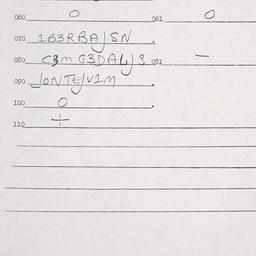 060 O 061 O
070 1B3RBAJSN .
080 C3MG3DALJ3 081 —
090 JONTEJV1M .
100 O .
110 +